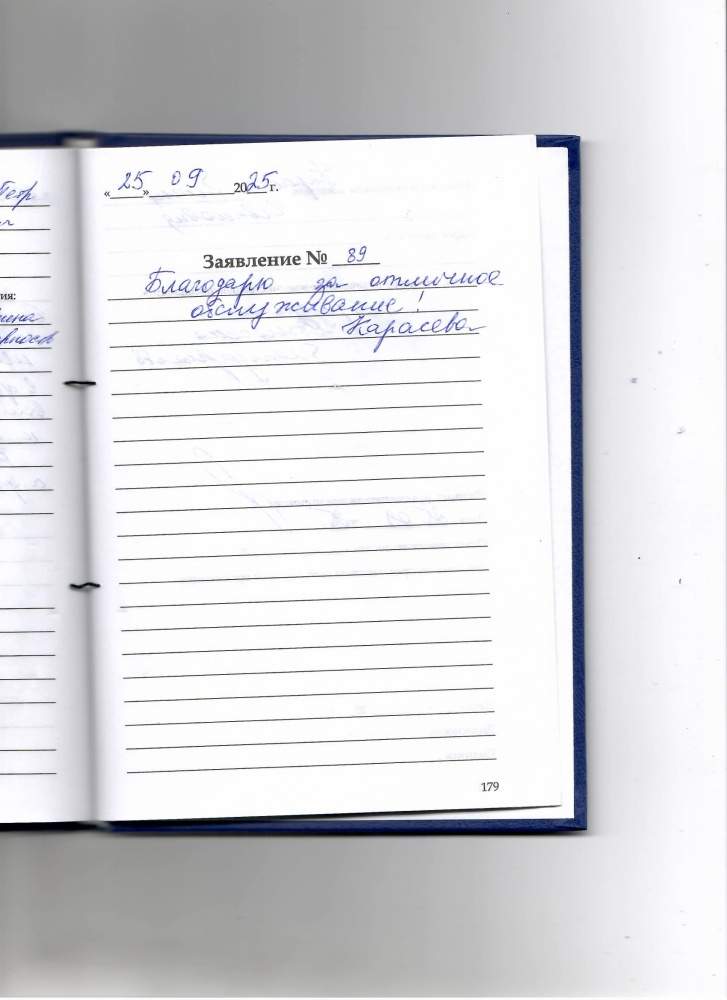 « 25 » 09 2025 г.
Заявление № 89
Благодарю за отличное
обслуживание!
Карасева
Петр
ия:
179